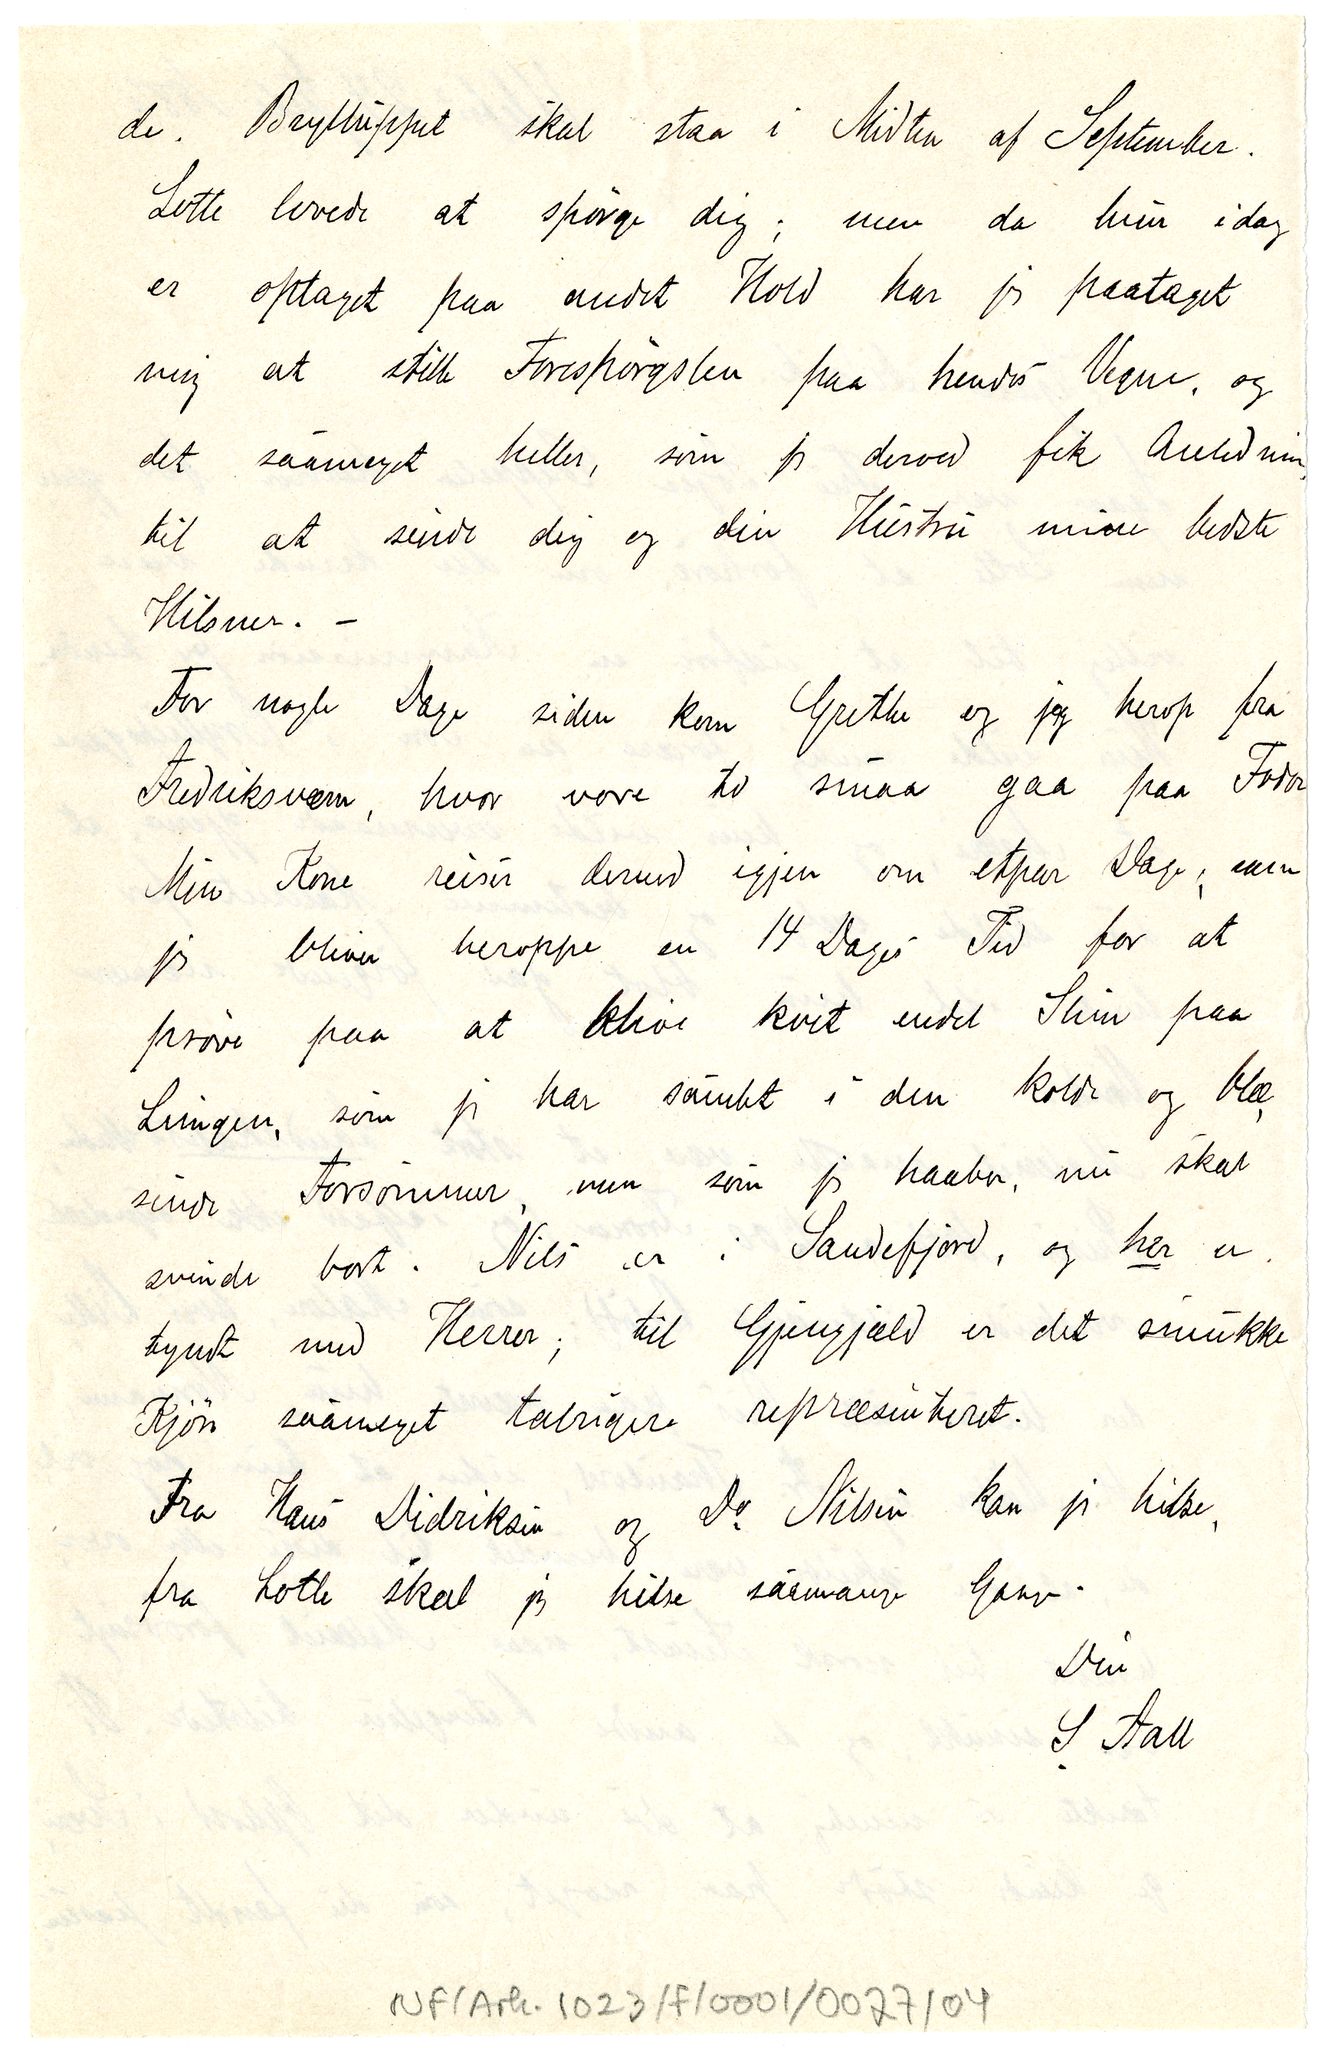 de. Brylluppet skal staa i Midten af September.
Lotte lovede at spörge dig; men da hun idag
er optaget paa andet Hold har jeg paataget
mig at stille Forespörgslen paa hendes Vegne, og
det saameget heller, som jeg derved fik Anledning
til at sende dig og din Hustru mine bedste
Hilsner. –
For nogle Dage siden kom Grethe og jeg herop fra
Fredriksværn, hvor vore to smaa gaa paa Foder
Min Kone reiser derned igjen om etpar Dage; men
jeg bliver heroppe en 14 Dages Tid for at
pröve paa at blive kvit endel Slim paa
Lungen, som jeg har samlet i den kolde og blæ,
sende Forsommer, men som jeg haaber, nu skal
svinde bort. Nils er i Sandefjord, og her er
tyndt med Herrer; til Gjengjæld er det smukke
Kjön saameget talrigere repræsenteret.
Fra Hans Didriksen og Dr. Nilsen kan jeg hilse,
fra Lotte skal jeg hilse saamange Gange.
Din
S. Aall
NF/Ark. 1023/F/0001/0027/04